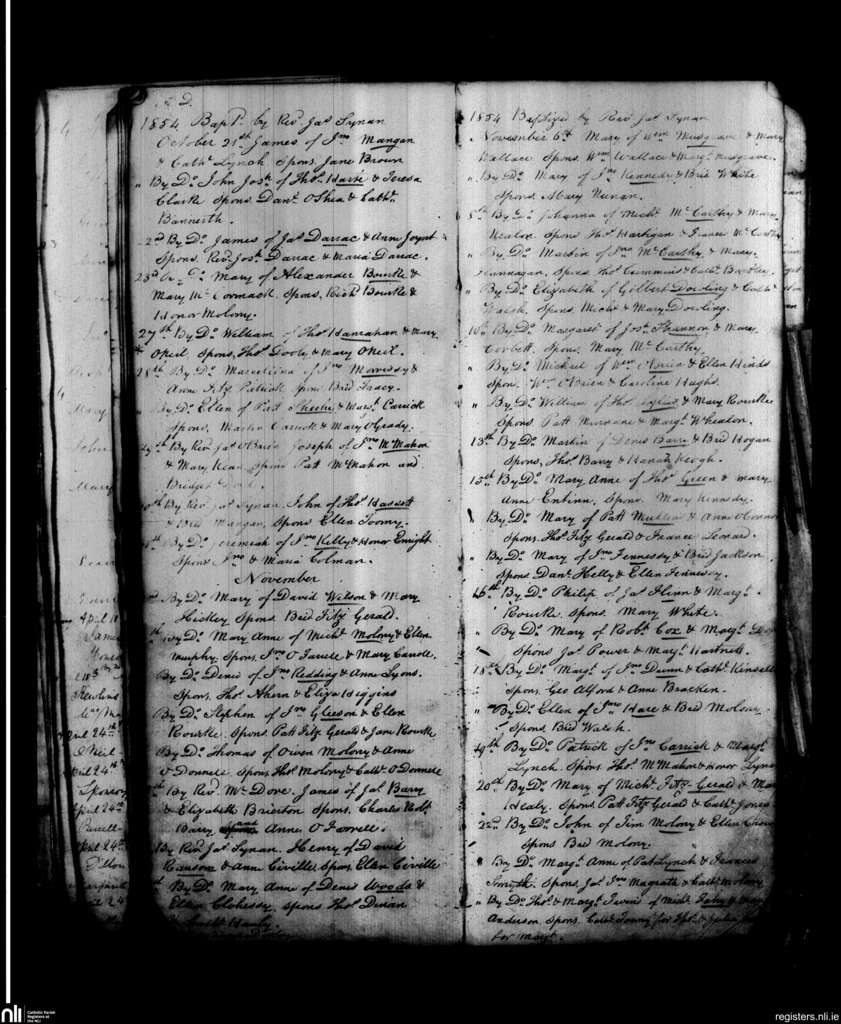 1854 Bapt. by Revd. Jas Synan
October 21st James of Jno Mangan
& Cathe Lynch Spons. Jane Brown
" By Do. John Josh. of Thos. & Teresa
Clarke Spons. Danl. O'Shea & Cathe.
22nd By Do. James of Jas Darrac & Anne Joynt
Spons. Revd. Josh. Darrac & Maria Darrac.
23d Do. Mary of Alexander Bourke &
Mary Mc Cormack. Spons. Richd Bourke &
Honor Molony.
27th By Do. William of Thos Hanrahan & Mary
O'Neil Spons. Thos. Dooly & Mary O'Neil.
28th By Do. of Jno Morrissy &
Anne Fitz Patrick Spons. Brid Tracy.
" By Do. Ellen of Patt Sheehe & Margt. Carrick
Spons. Martin Carrick & Mary O'Grady.
29th By Revd. Jas O'Brien Joseph of Jno McMahon
& Mary Spons Patt McMahon and
Bridget
By Revd Jas Synan John of Thos Hassett
& Brid Mangan, Spons Ellen Toomy.
By Do. Jeremiah of Jno Kelly & Honor Enright
Spons Jno & Maria Colman.
November
By Do. Mary of David Wilson & Mary
Hickey Spons. Brid Fitz Gerald.
By Do. Mary Anne of Michl Molony & Ellen
Murphy. Spons. Jno O'Farrell & Mary Carroll.
By Do. Denis of Jno Redding & Anne Lyons.
Spons. Thos. Ahern & Eliza Higgins
By Do. Stephen of Jno Gleeson & Ellen
Rourke. Spons. Patt Fitz Gerald & Jane Rourke
By Do. Thomas of Owen Molony & Anne
O'Donnell. Spons. Thos Molony & Cathe O'Donnele
By Revd. Mr Dore. James of Jas Barry
& Elizabeth Brierton Spons. Charles Robt.
Barry Anne O'Farrell.
By Revd Jas Synan. Henry of David
Ransom & Anne Civille, Spons. Ellen Civille
By Do. Mary Anne of Denis Woods &
Ellen Clohessy. Spons Thos Dinan
1854 Baptized by Revd Jas Synan
November 6th Mary of Wm Musgrave & Mary
Wallace Spons. Wm Wallace & Margt. Musgrave.
" By Do. Mary of Jno Kennedy & Brid White
Spons. Mary Nunan.
By Do. Johanna of Michl McCarthy & Mary
Nealon Spons Thos Hartigan & Frances McCarthy
" By Do. Martin of Jno McCarthy & Mary
Flannagan, Spons. Thos Cummins & Cathe
" By Do. Elizabeth of Gilbert Dowling & Cathe
Walsh. Spons. Michl & Mary Dowling.
10th By Do. Margaret of Josh. Shannon & Mary
Corbett. Spons. Mary McCarthy.
" By Do. Michael of Wm O'Brien & Ellen Hinds
Spons. Wm O'Brien & Caroline Hughs.
" By Do. William of Thos & Mary Rourke
Spons Patt Murnane & Margt Whealon.
13th By Do. Martin of Denis Barre & Brid Hogan
Spons. Thos. Barry & Hanah Keogh.
15th By Do. Mary Anne of Thos Green & Mary
Anne Spons. Mary Kennedy.
" By Do. Mary of Patt & Anne O'Connor
Spons. Thos Fitz Gerald & Frances Leonard.
" By Do. Mary of Jno Fennessy & Brid Jackson
Spons. Danl. Helly & Ellen Fennessy.
16th By Do. Philip of Jas Flinn & Margt.
Rourke. Spons. Mary White.
" By Do. Mary of Robt. Cox & Margt
Spons Jas Power & Margt Hartnett.
18th By Do. Margt. of Jno Dunn & Cathe Kinsell
Spons. Geo Alford & Anne Bracken.
" By Do. Ellen of Jno Hare & Brid Molony
Spons Brid Walsh.
19th By Do. Patrick of Jno Carrick & Margt
Lynch. Spons Thos McMahon & Honor Lynch
20th By Do. Mary of Michl. Fitz-Gerald &
Healy. Spons. Patt Fitz Gerald & Cathe Jones
22nd By Do. John of Tim Molony & Ellen
Spons Brid Molony.
" By Do. Margt. Anne of Pat Lynch & Frances
Smyth. Spons. Jas Jno Magrath & Cathe Molony
" By Do. Thos. & Margt. Twins of Michl Fahy &
Anderson. Spons. Cathe for Thos. &
for Margt.
April 18
April 24th
O'Neil
April 24th
April 24th
April 24th
nli
Catholic Parish
Registers at
the NLI
registers.nli.ie